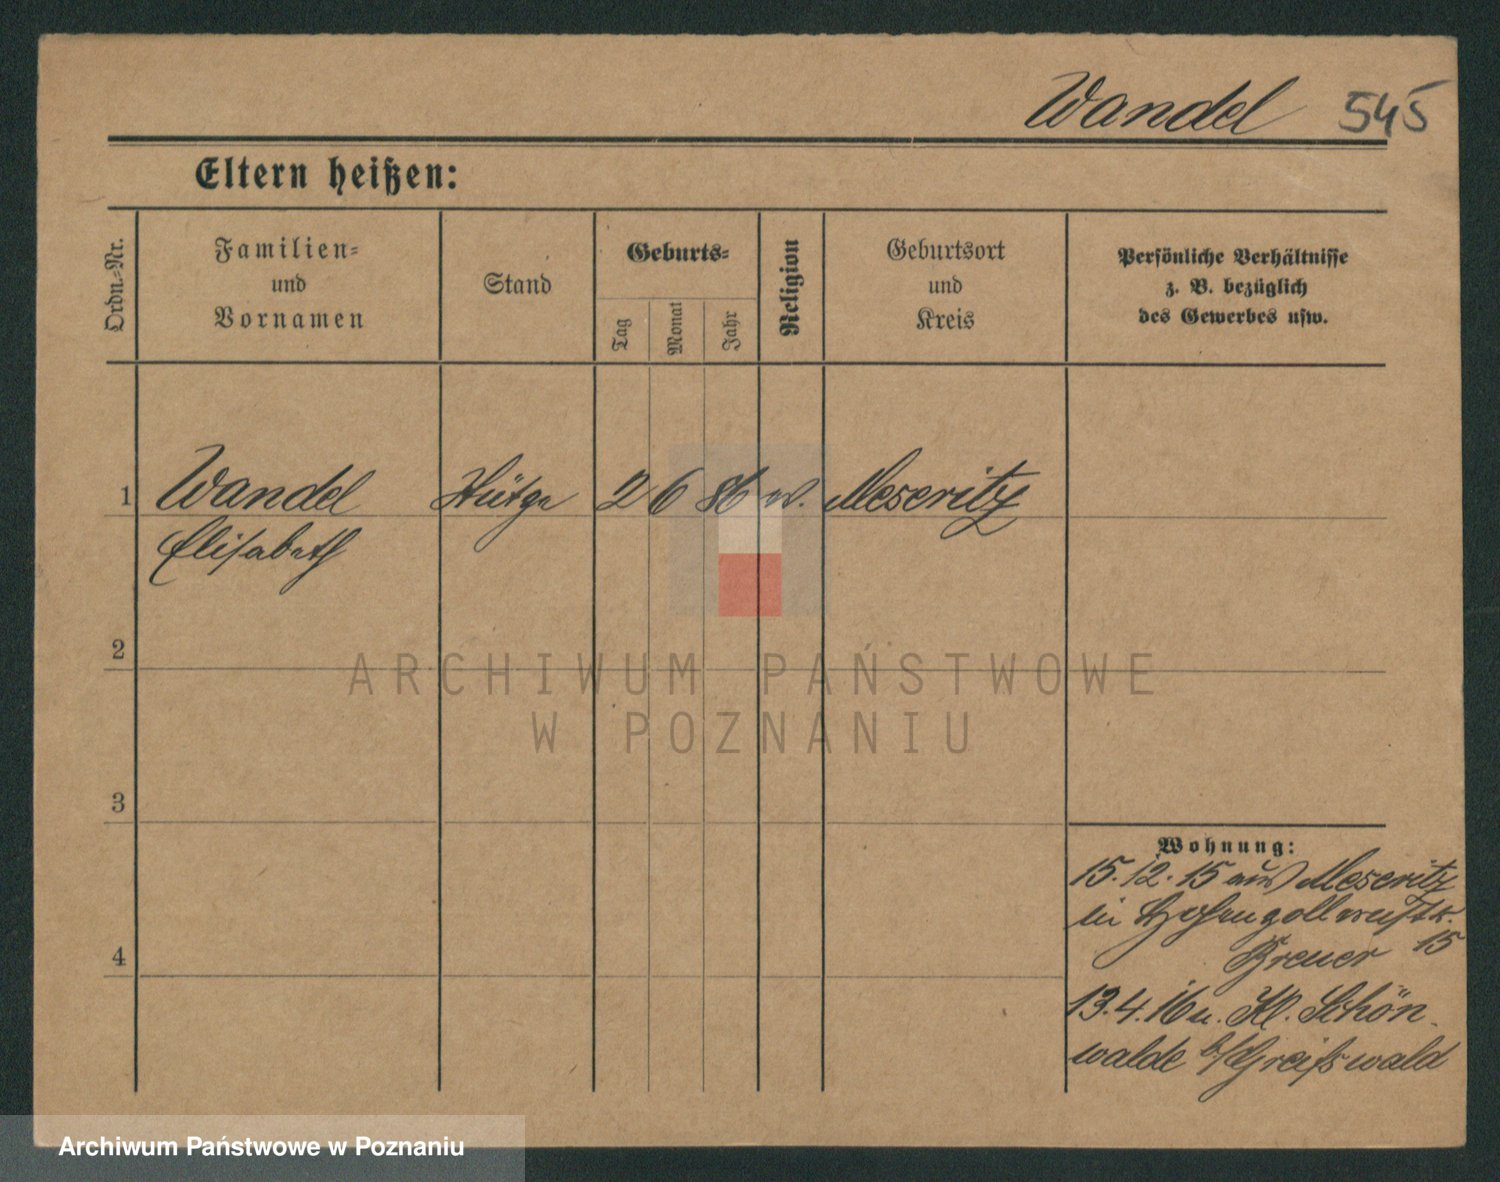 Wandel 545
Eltern heißen:
Ordn.-Nr.
Familien-
und
Vornamen
Stand
Geburts-
Tag
Monat
Jahr
Religion
Geburtsort
und
Kreis
Persönliche Verhältnisse
z. B. bezüglich
des Gewerbes usw.
1 Wandel 2 6 86 Meseritz
Elisabeth
2
ARCHIWUM PAŃSTWOWE
W POZNANIU
3
Wohnung:
15.12.15 aus Meseritz
in
Breuer 15
4
13.4.16 n. Kl. Schön-
walde b/Greifswald
Archiwum Państwowe w Poznaniu